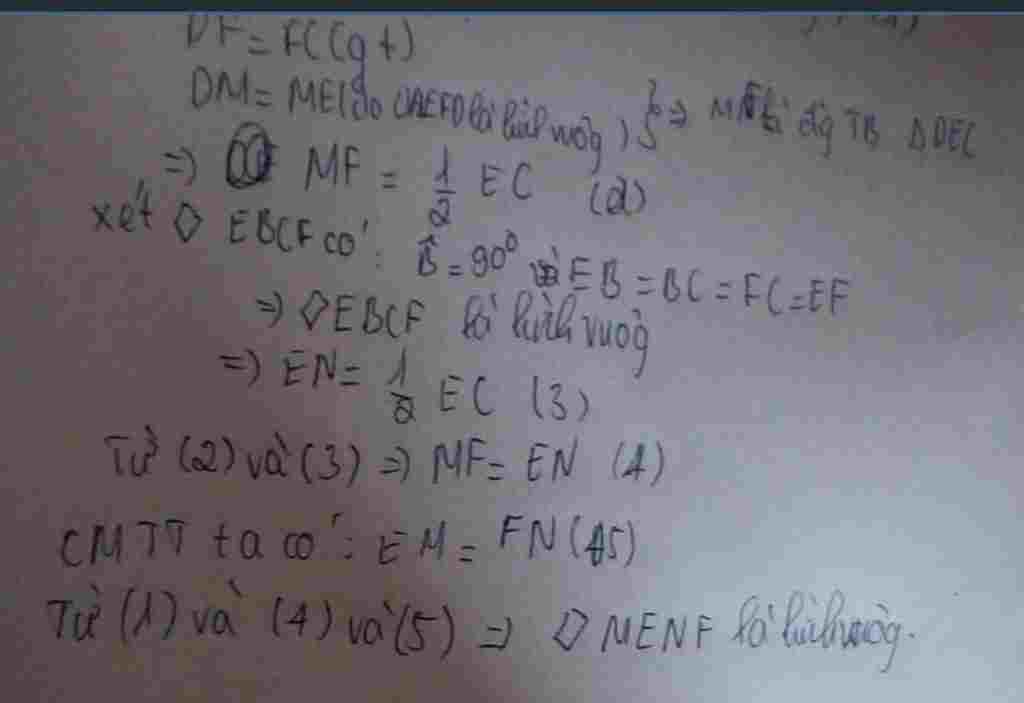 DF = FC (gt)
DM = ME (do AEFD là hình vuôg) } => MF là đg TB Δ DEC
=> MF = 1/2 EC (2)
xét ◇ EBCF có: B̂ = 90° và EB = BC = FC = EF
=> ◇ EBCF là hình vuôg
=> EN = 1/2 EC (3)
Từ (2) và (3) => MF = EN (4)
CMTT ta có: EM = FN (5)
Từ (1) và (4) và (5) => ◇ MENF là hình vuôg.